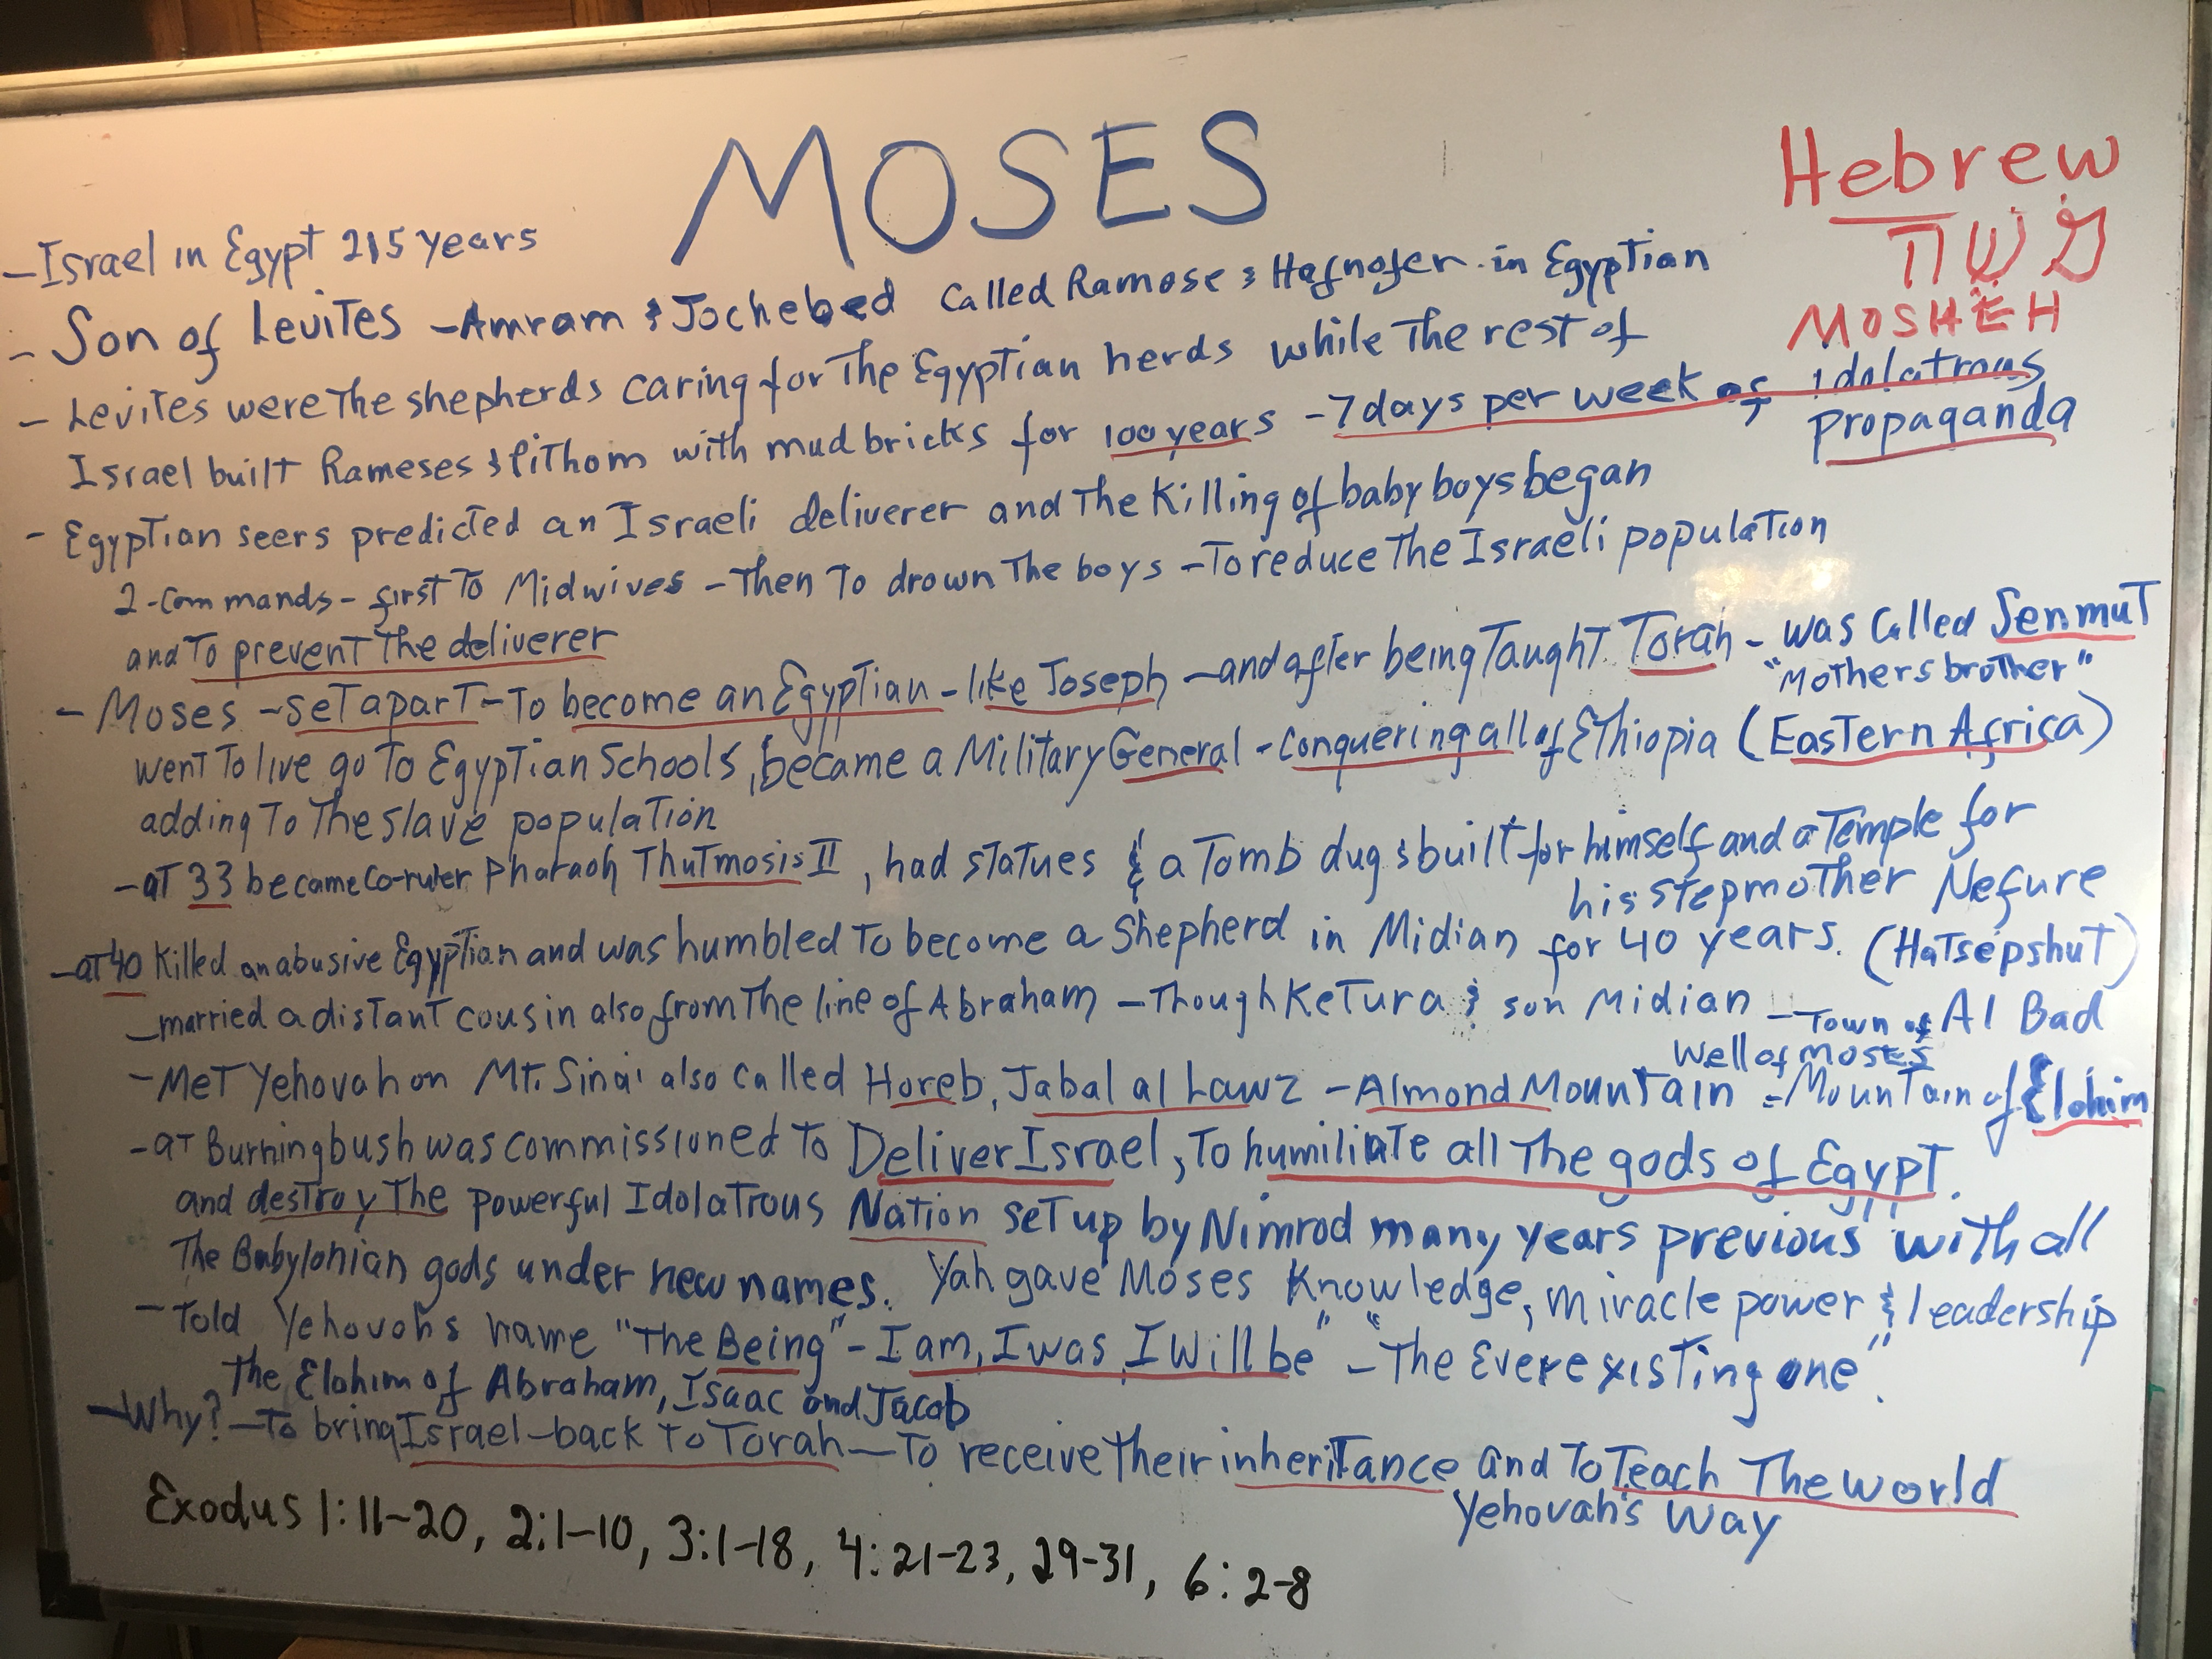 MOSES
Hebrew
מֹשֶׁה
MOSHEH
-Israel in Egypt 215 years
- Son of Levites -Amram & Jochebed called Ramose & Hafnofer in Egyptian
- Levites were the shepherds caring for the Egyptian herds while the rest of
Israel built Rameses & Pithom with mud bricks for 100 years -7 days per week of idolatrous
propaganda
- Egyptian seers predicted an Israeli deliverer and the killing of baby boys began
2-commands- first to Midwives -then to drown the boys -to reduce the Israeli population
and to prevent the deliverer
- Moses -set apart-to become an Egyptian -like Joseph -and after being taught Torah - was called Senmut
"Mothers brother"
went to live go to Egyptian Schools, became a Military General -conquering all of Ethiopia (Eastern Africa)
adding to the slave population
-at 33 became co-ruler Pharaoh Thutmosis II, had statues & a tomb dug & built for himself and a Temple for
his stepmother Nefure
(Hatsepshut)
-at 40 killed an abusive Egyptian and was humbled to become a shepherd in Midian for 40 years.
-married a distant cousin also from the line of Abraham -though Ketura & son Midian -Town of Al Bad
Well of Moses
-Met Yehovah on Mt. Sinai also called Horeb, Jabal al Lawz -Almond Mountain =Mountain of Elohim
-at Burning bush was commissioned to Deliver Israel, to humiliate all the gods of Egypt.
and destroy the powerful Idolatrous Nation set up by Nimrod many years previous with all
the Babylonian gods under new names. Yah gave Moses knowledge, miracle power & leadership
-Told Yehovahs name "The Being"-I am, I was, I will be" "-The Ever existing one".
The Elohim of Abraham, Isaac and Jacob
-Why? -To bring Israel-back to Torah-To receive their inheritance and to Teach The world
Yehovah's Way
Exodus 1:11-20, 2:1-10, 3:1-18, 4:21-23, 29-31, 6:2-8